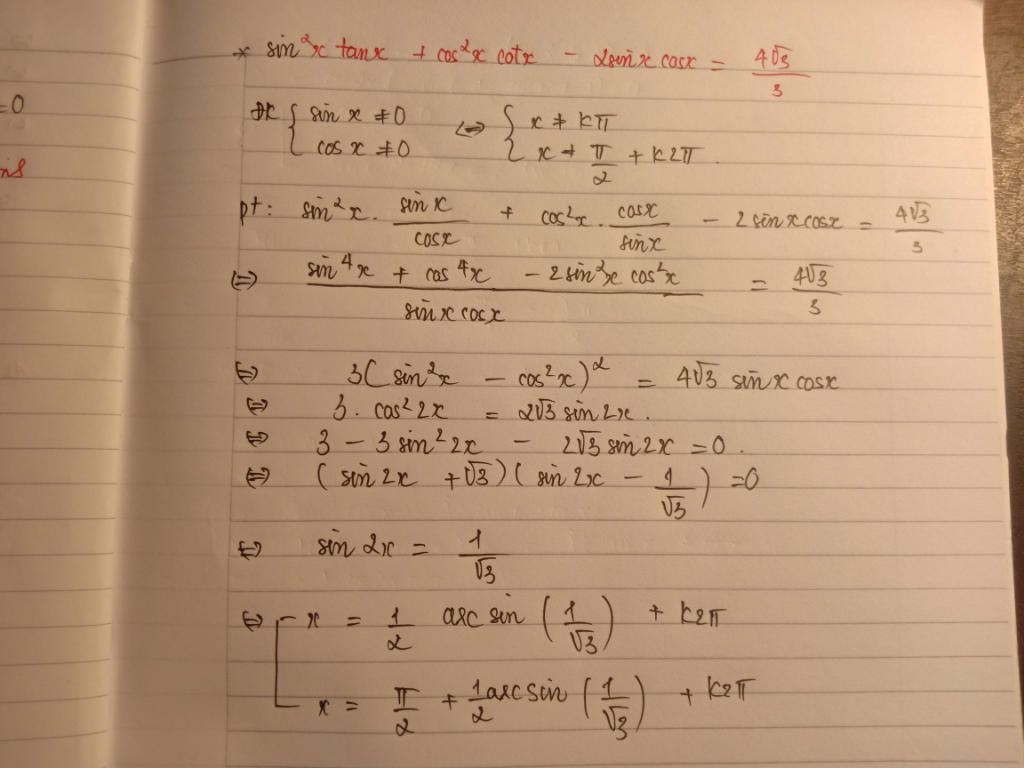 =0
* sin²x tanx + cos²x cotx - 2sinx cosx = 4√3/3
ĐK { sin x ≠ 0 ⇔ { x ≠ kπ
cos x ≠ 0 x ≠ π/2 + k2π.
pt: sin²x. sin x/cosx + cos²x. cosx/sinx - 2 sinx cosx = 4√3/3
⇔ (sin⁴x + cos⁴x - 2sin²x cos²x)/(sinx cosx) = 4√3/3
⇔ 3(sin²x - cos²x)² = 4√3 sinx cosx
⇔ 3. cos²2x = 2√3 sin2x.
⇔ 3 - 3sin²2x - 2√3 sin2x = 0.
⇔ (sin 2x + √3)(sin 2x - 1/√3) = 0
⇔ sin 2x = 1/√3
⇔ [ x = 1/2 arcsin (1/√3) + k2π
x = π/2 + 1/2 arcsin (1/√3) + k2π